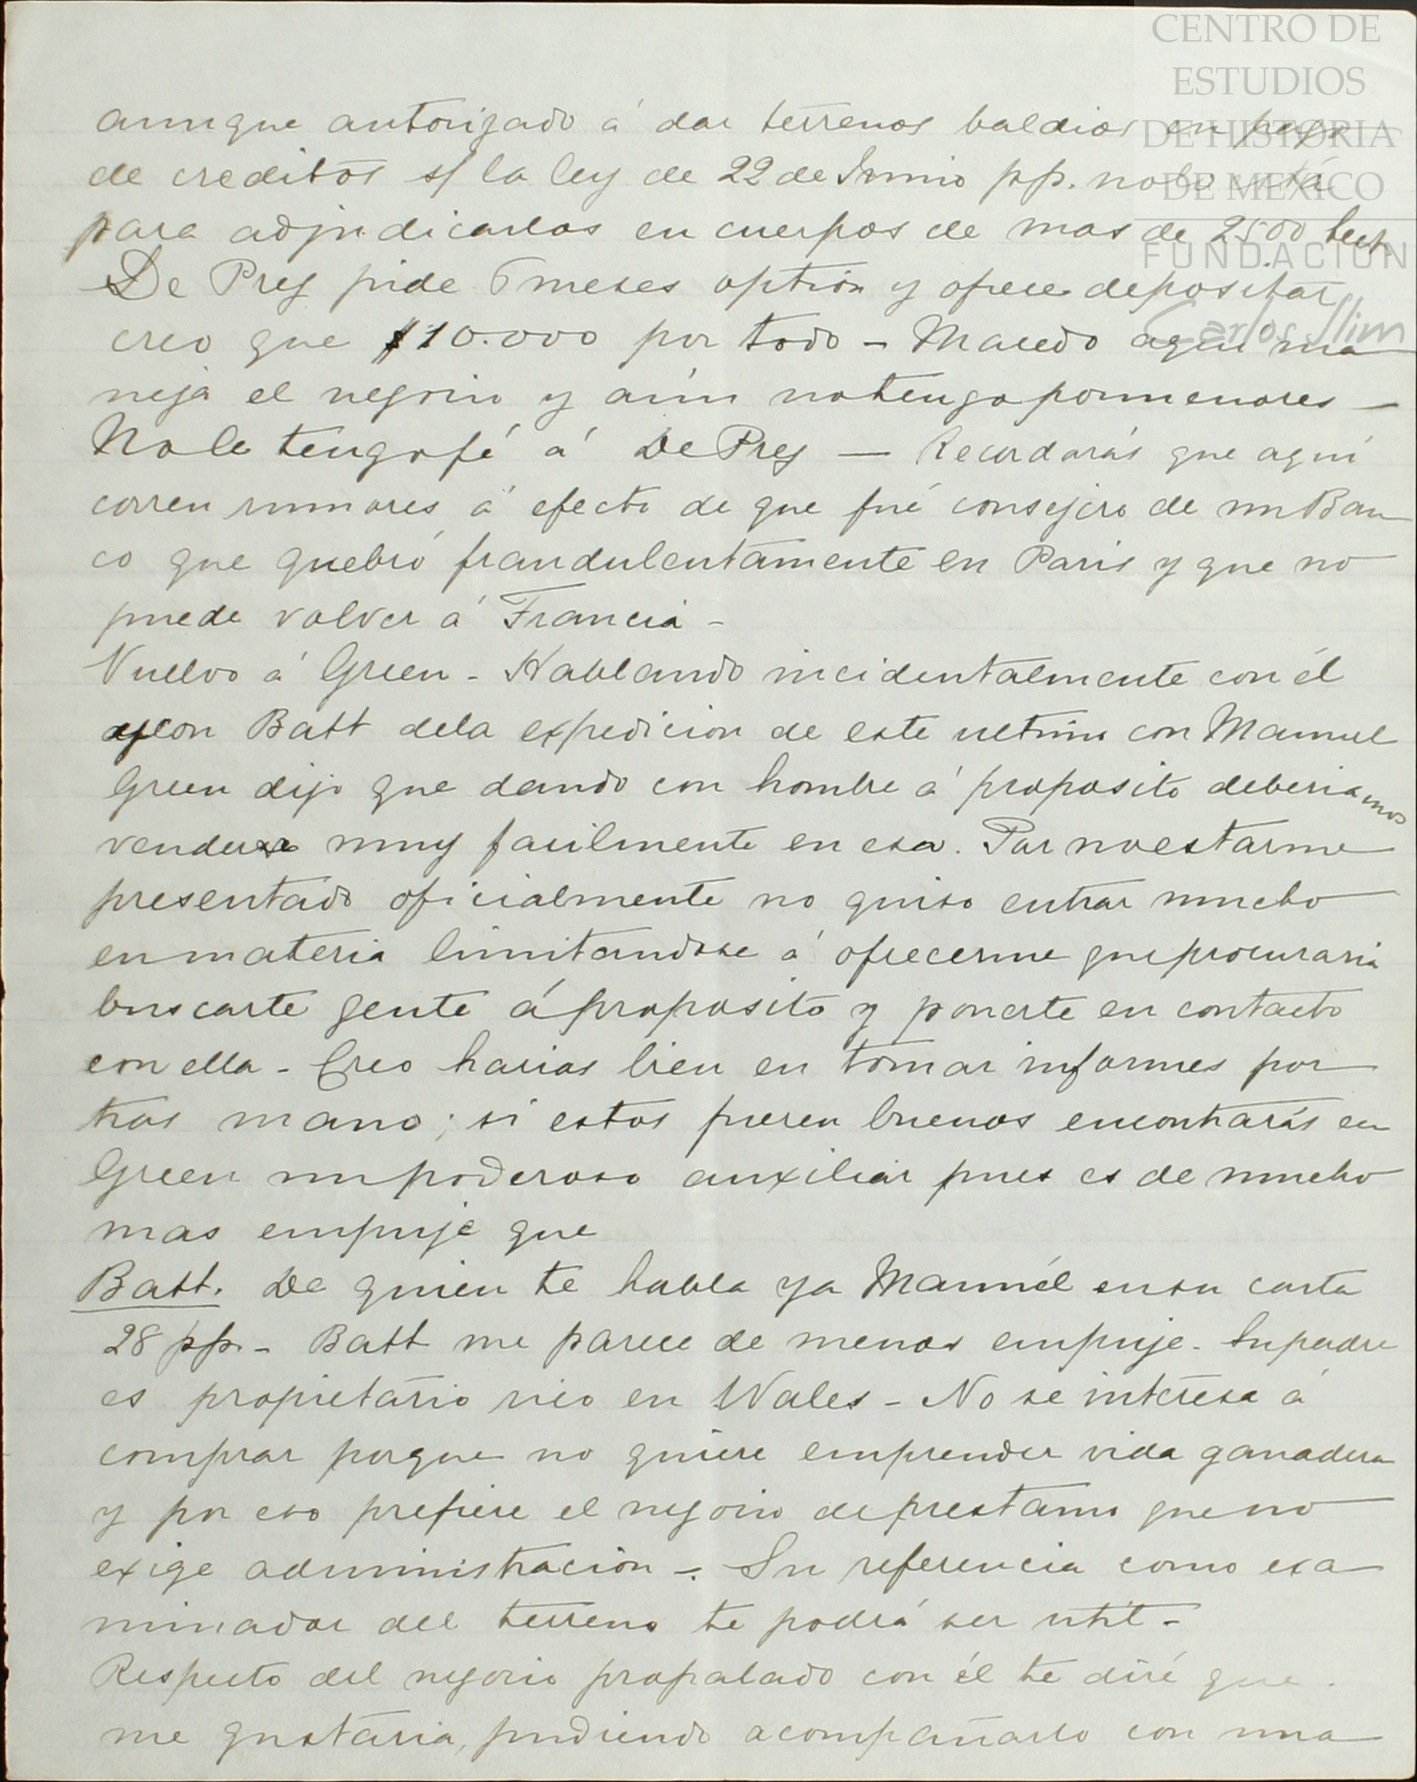 CENTRO DE
ESTUDIOS
DE HISTORIA
DE MEXICO
FUNDACIÓN
Carlos Slim
aunque autorizado á dar terrenos baldios en pago
de creditos s/ la ley de 22 de Junio pp. no lo está
para adjudicarlos en cuerpos de mas de 2500 hect.
De Prez pide 6 meses option y ofrece depositar
creo que $10.000 por todo – Macedo aqui ma
neja el negocio y aún no tengo pormenores –
No le tengo fé á De Prez — Recordarás que aquí
corren rumores á efecto de que fué consejero de un Ban
co que quebró fraudulentamente en Paris y que no
puede volver á Francia –
Vuelvo á Green – Hablando incidentalmente con él
y con Batt dela expedicion de este ultimo con Manuel
Green dijo que dando con hombre á proposito deberiamos
vender muy facilmente en esa. Por no estarme
presentado oficialmente no quiso entrar mucho
en materia limitandose á ofrecerme que procuraria
buscarte gente á proposito y ponerte en contacto
con ella – Creo harias bien en tomar informes por
tras mano; si estos fueren buenos encontrarás en
Green un poderoso auxiliar pues es de mucho
mas empuje que
Batt. De quien te habla ya Manuél en su carta
28 pp. – Batt me parece de menos empuje. Su padre
es propietario rico en Wales – No se interesa á
comprar porque no quiere emprender vida ganadera
y por eso prefiere el negocio de prestamo que no
exige administración –. Su referencia como exa
minador del terreno te podrá ser util –
Respecto del negocio propalado con él te diré que
me gustaria, pudiendo acompañarlo con una